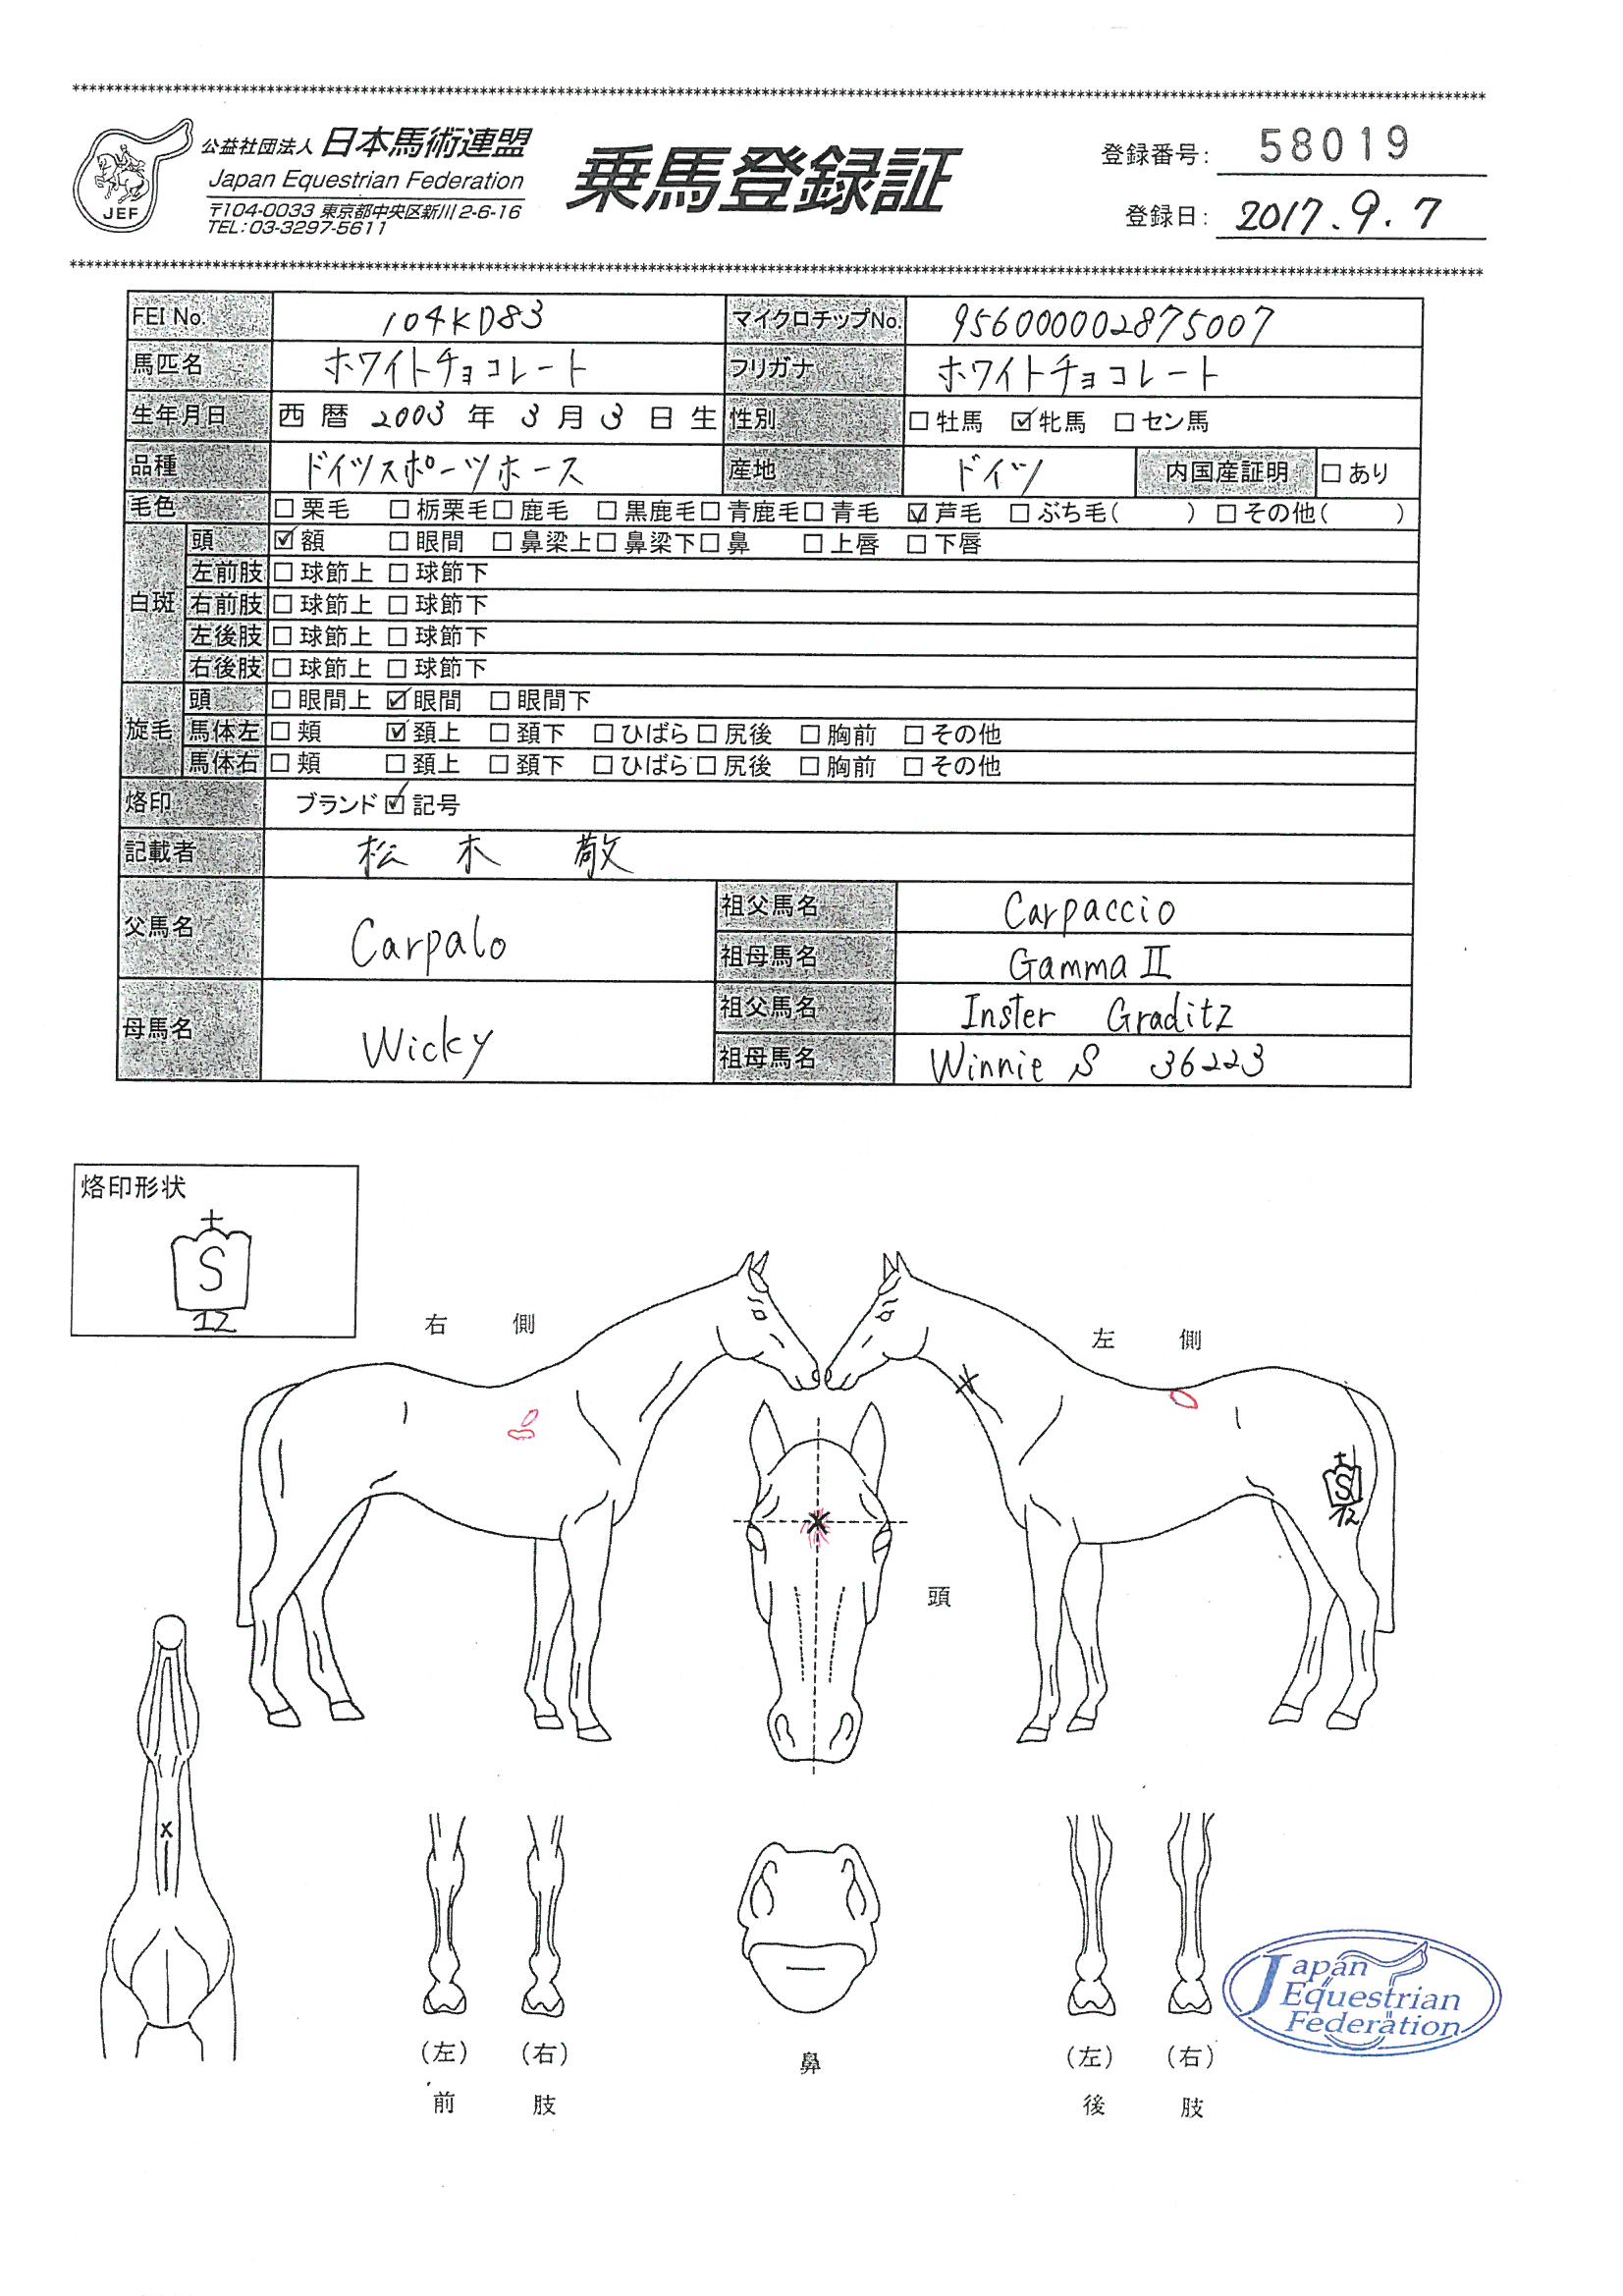 公益社団法人 日本馬術連盟
Japan Equestrian Federation
〒104-0033 東京都中央区新川2-6-16
TEL:03-3297-5611
JEF
乗馬登録証
登録番号: 58019
登録日: 2017.9.7
FEI No. 104KD83 マイクロチップNo. 956000002875007
馬匹名 ホワイトチョコレート フリガナ ホワイトチョコレート
生年月日 西暦 2003 年 3 月 3 日 生 性別 □牡馬 ☑牝馬 □セン馬
品種 ドイツスポーツホース 産地 ドイツ 内国産証明 □あり
毛色 □栗毛 □栃栗毛 □鹿毛 □黒鹿毛 □青鹿毛 □青毛 ☑芦毛 □ぶち毛( ) □その他( )
白斑 頭 ☑額 □眼間 □鼻梁上 □鼻梁下 □鼻 □上唇 □下唇
左前肢 □球節上 □球節下
右前肢 □球節上 □球節下
左後肢 □球節上 □球節下
右後肢 □球節上 □球節下
旋毛 頭 □眼間上 ☑眼間 □眼間下
馬体左 □頬 ☑頚上 □頚下 □ひばら □尻後 □胸前 □その他
馬体右 □頬 □頚上 □頚下 □ひばら □尻後 □胸前 □その他
烙印 ブランド ☑記号
記載者 松木 敬
父馬名 Carpalo 祖父馬名 Carpaccio
祖母馬名 Gamma II
母馬名 Wicky 祖父馬名 Inster Graditz
祖母馬名 Winnie S 36223
烙印形状
S
12
右側
左側
S
12
頭
(左) (右)
前肢
鼻
(左) (右)
後肢
Japan
Equestrian
Federation